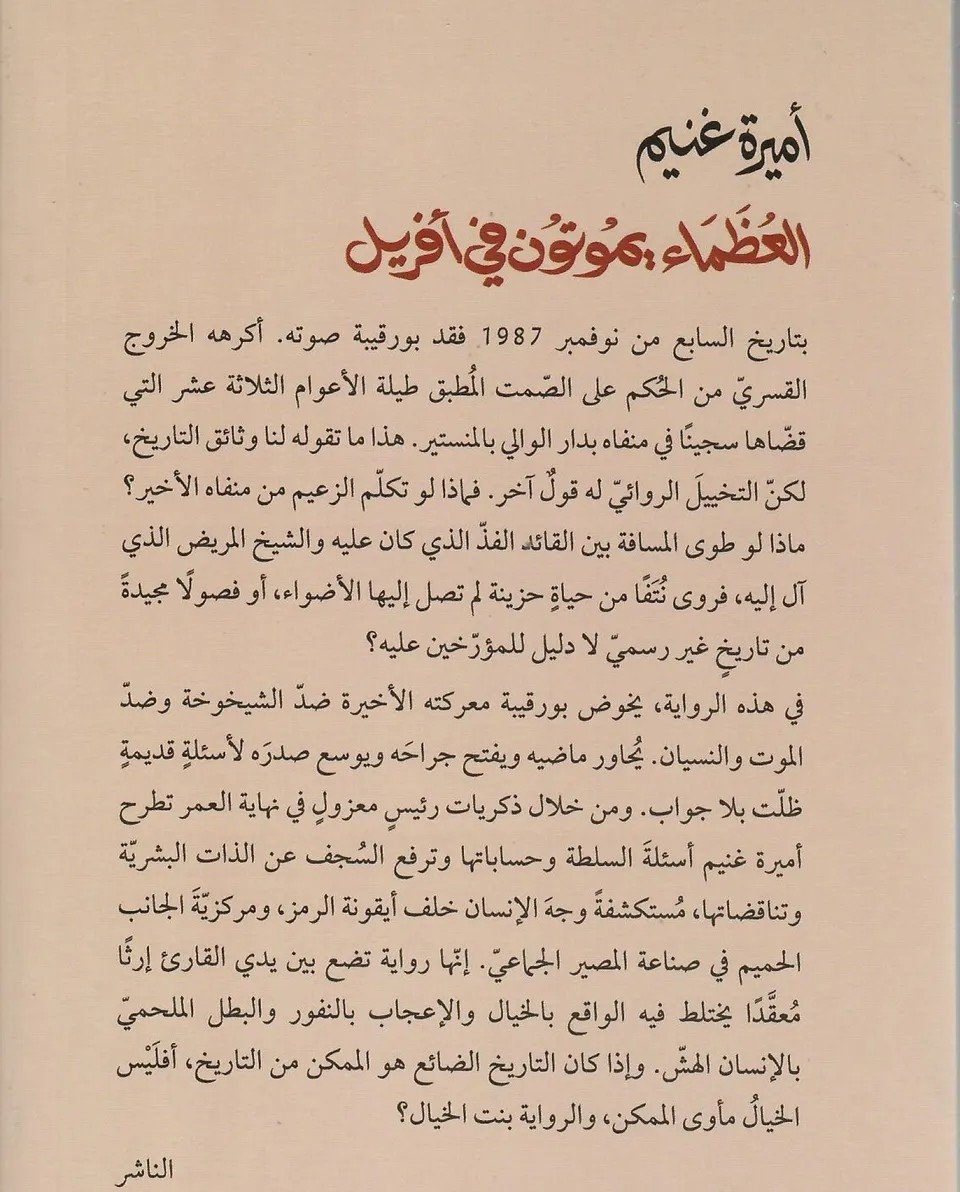 أميرة غنيم
العُظَمَاء يموُتوُن في أفريل
بتاريخ السابع من نوفمبر 1987 فقد بورقيبة صوته. أكرهه الخروج
القسريّ من الحُكم على الصّمت المُطبق طيلة الأعوام الثلاثة عشر التي
قضّاها سجينًا في منفاه بدار الوالي بالمنستير. هذا ما تقوله لنا وثائق التاريخ،
لكنّ التخييلَ الروائيّ له قولٌ آخر. فماذا لو تكلّم الزعيم من منفاه الأخير؟
ماذا لو طوى المسافة بين القائد الفذّ الذي كان عليه والشيخ المريض الذي
آل إليه، فروى نُتَفًا من حياةٍ حزينة لم تصل إليها الأضواء، أو فصولًا مجيدةً
من تاريخٍ غير رسميّ لا دليل للمؤرّخين عليه؟
في هذه الرواية، يخوض بورقيبة معركته الأخيرة ضدّ الشيخوخة وضدّ
الموت والنسيان. يُحاور ماضيه ويفتح جراحَه ويوسع صدرَه لأسئلةٍ قديمةٍ
ظلّت بلا جواب. ومن خلال ذكريات رئيسٍ معزولٍ في نهاية العمر تطرح
أميرة غنيم أسئلةَ السلطة وحساباتها وترفع السُجف عن الذات البشريّة
وتناقضاتها، مُستكشفةً وجهَ الإنسان خلف أيقونة الرمز، ومركزيّةَ الجانب
الحميم في صناعة المصير الجماعيّ. إنّها رواية تضع بين يدي القارئ إرثًا
مُعقَّدًا يختلط فيه الواقع بالخيال والإعجاب بالنفور والبطل الملحميّ
بالإنسان الهشّ. وإذا كان التاريخ الضائع هو الممكن من التاريخ، أفلَيْس
الخيالُ مأوى الممكن، والرواية بنت الخيال؟
الناشر